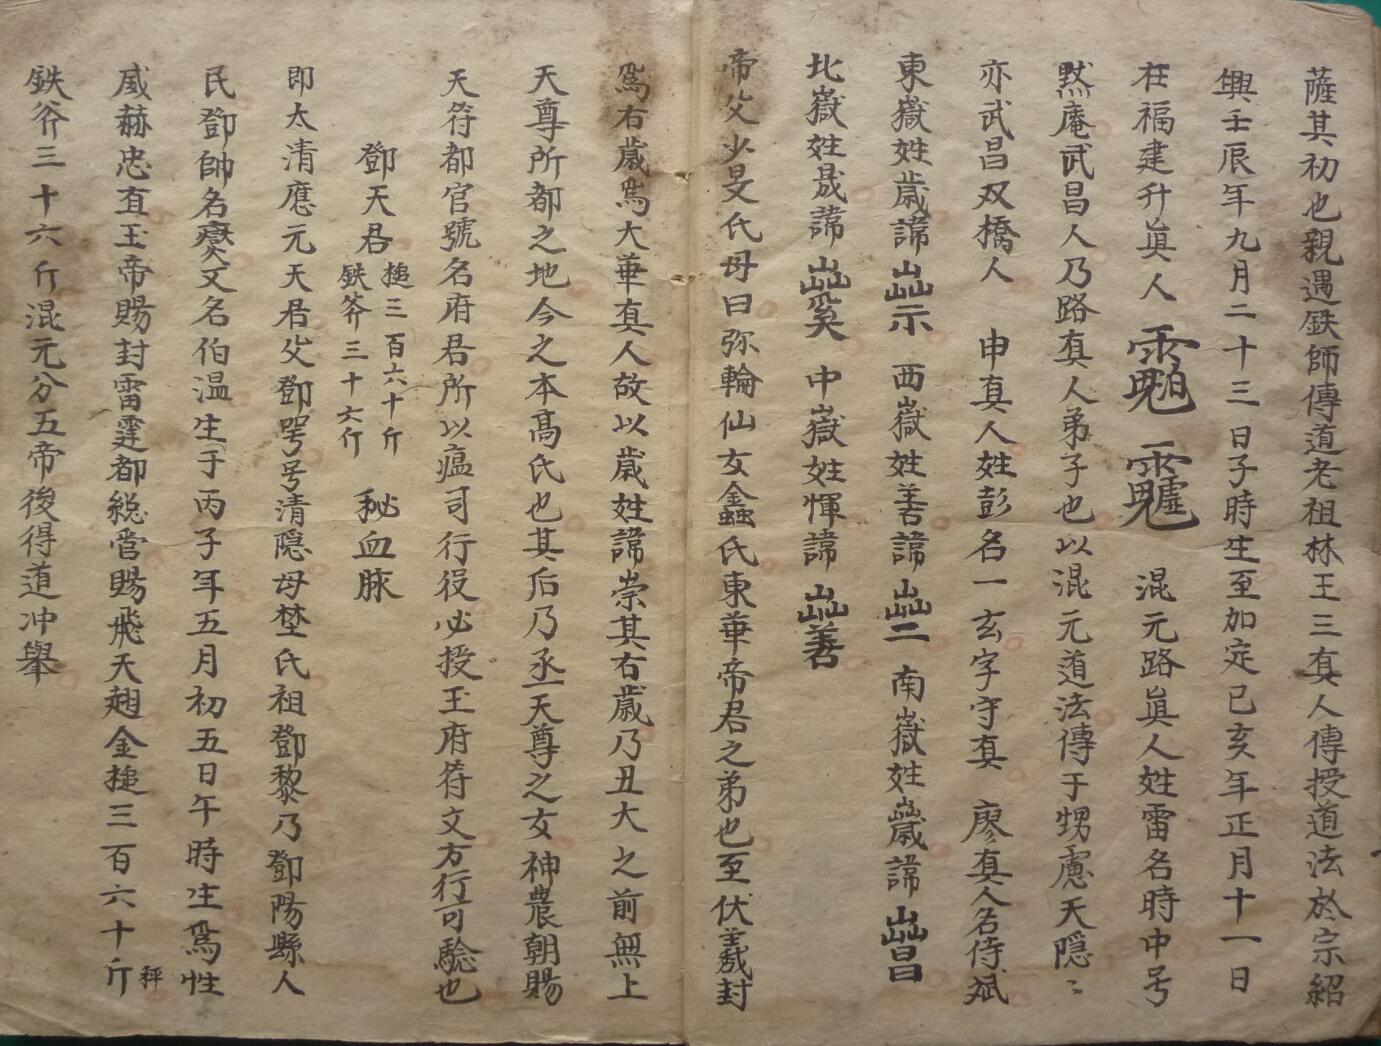 薩其初也親遇鉄師傳道老祖林王三真人傳授道法於宗紹
興壬辰年九月二十三日子時生至加定已亥年正月十一日
在福建升真人 混元路真人姓雷名時中号
黙庵武昌人乃路真人弟子也以混元道法傳于甥慮天隠〻
亦武昌双橋人 申真人姓彭名一玄字守真 廖真人名侍斌
東嶽姓歲諱 西嶽姓善諱 南嶽姓歲諱
北嶽姓晟諱 中嶽姓惲諱
帝父少旻氏母曰弥輪仙女金䖝氏東華帝君之弟也至伏羲封
爲右歲爲大華真人故以歲姓諱崇其右歲乃丑大之前無上
天尊所都之地今之本髙氏也其后乃丞天尊之女神農朝賜
天符都官號名府君所以瘟司行役必授玉府符文方行可驗也
鄧天君 槌三百六十斤 鉄斧三十六斤 秘血脉
即太清應元天君父鄧咢号清隠母埜氏祖鄧黎乃鄧陽縣人
民鄧帥名爕又名伯温生于丙子年五月初五日午時生爲性
威赫忠直玉帝賜封雷霆都総管賜飛天翅金搥三百六十斤 秤
鉄斧三十六斤混元分五帝後得道冲舉